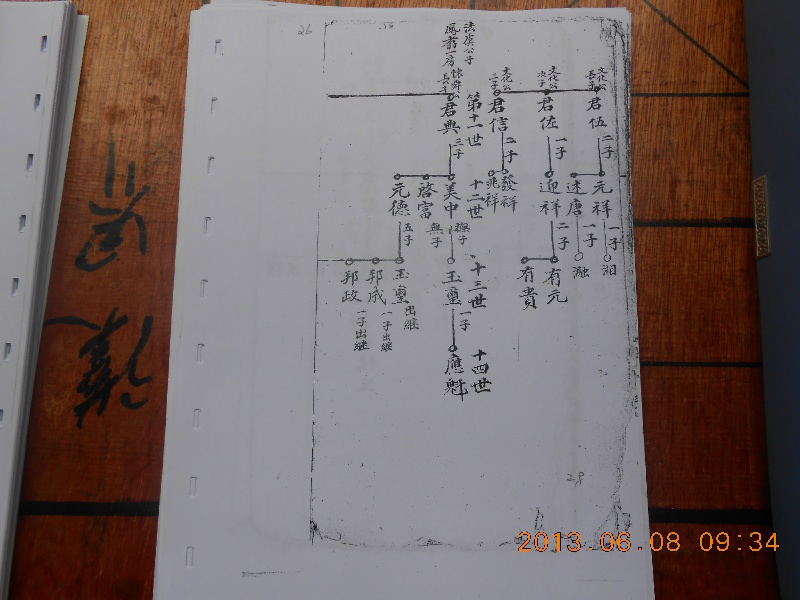 26
文化公
長子
君伍
二子
元祥
一子
述唐
一子
文化公
次子
君佐
一子
迎祥
二子
有元
有貴
文化公
三子
君信
二子
發祥
兆祥
第十一世
十二世
十三世
十四世
法廣公子
長子
君興
三子
美中
撫子
玉璽
一子
應魁
啓富
無子
元德
五子
玉璽
出繼
邦成
一子出繼
邦政
一子出繼
28
2013.06.08 09:34